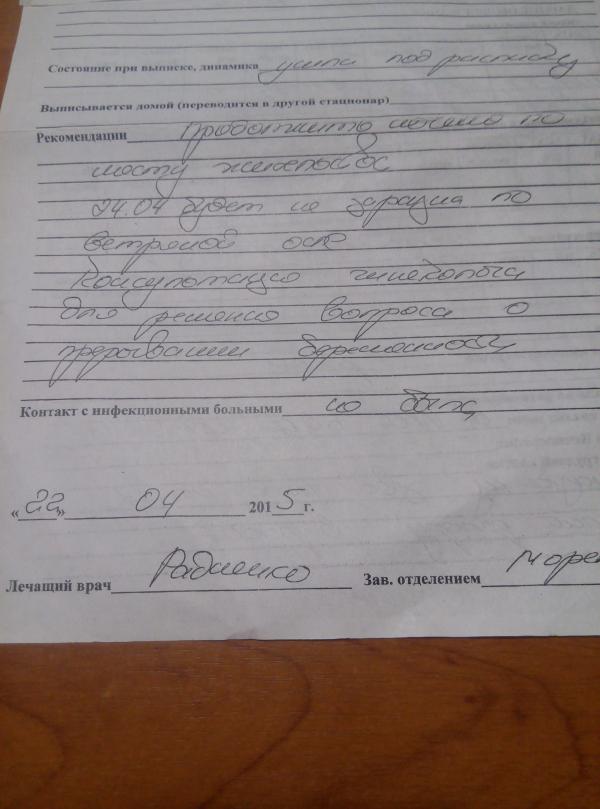 Состояние при выписке, динамика ушла под расписку
Выписывается домой (переводится в другой стационар)
Рекомендации продолжить лечение по
месту жительства
24.04 будет не заразна по
ветряной оспе
Консультация гинеколога
для решения вопроса о
прерывании беременности
Контакт с инфекционными больными не был
«22» 04 2015 г.
Лечащий врач Радченко Зав. отделением